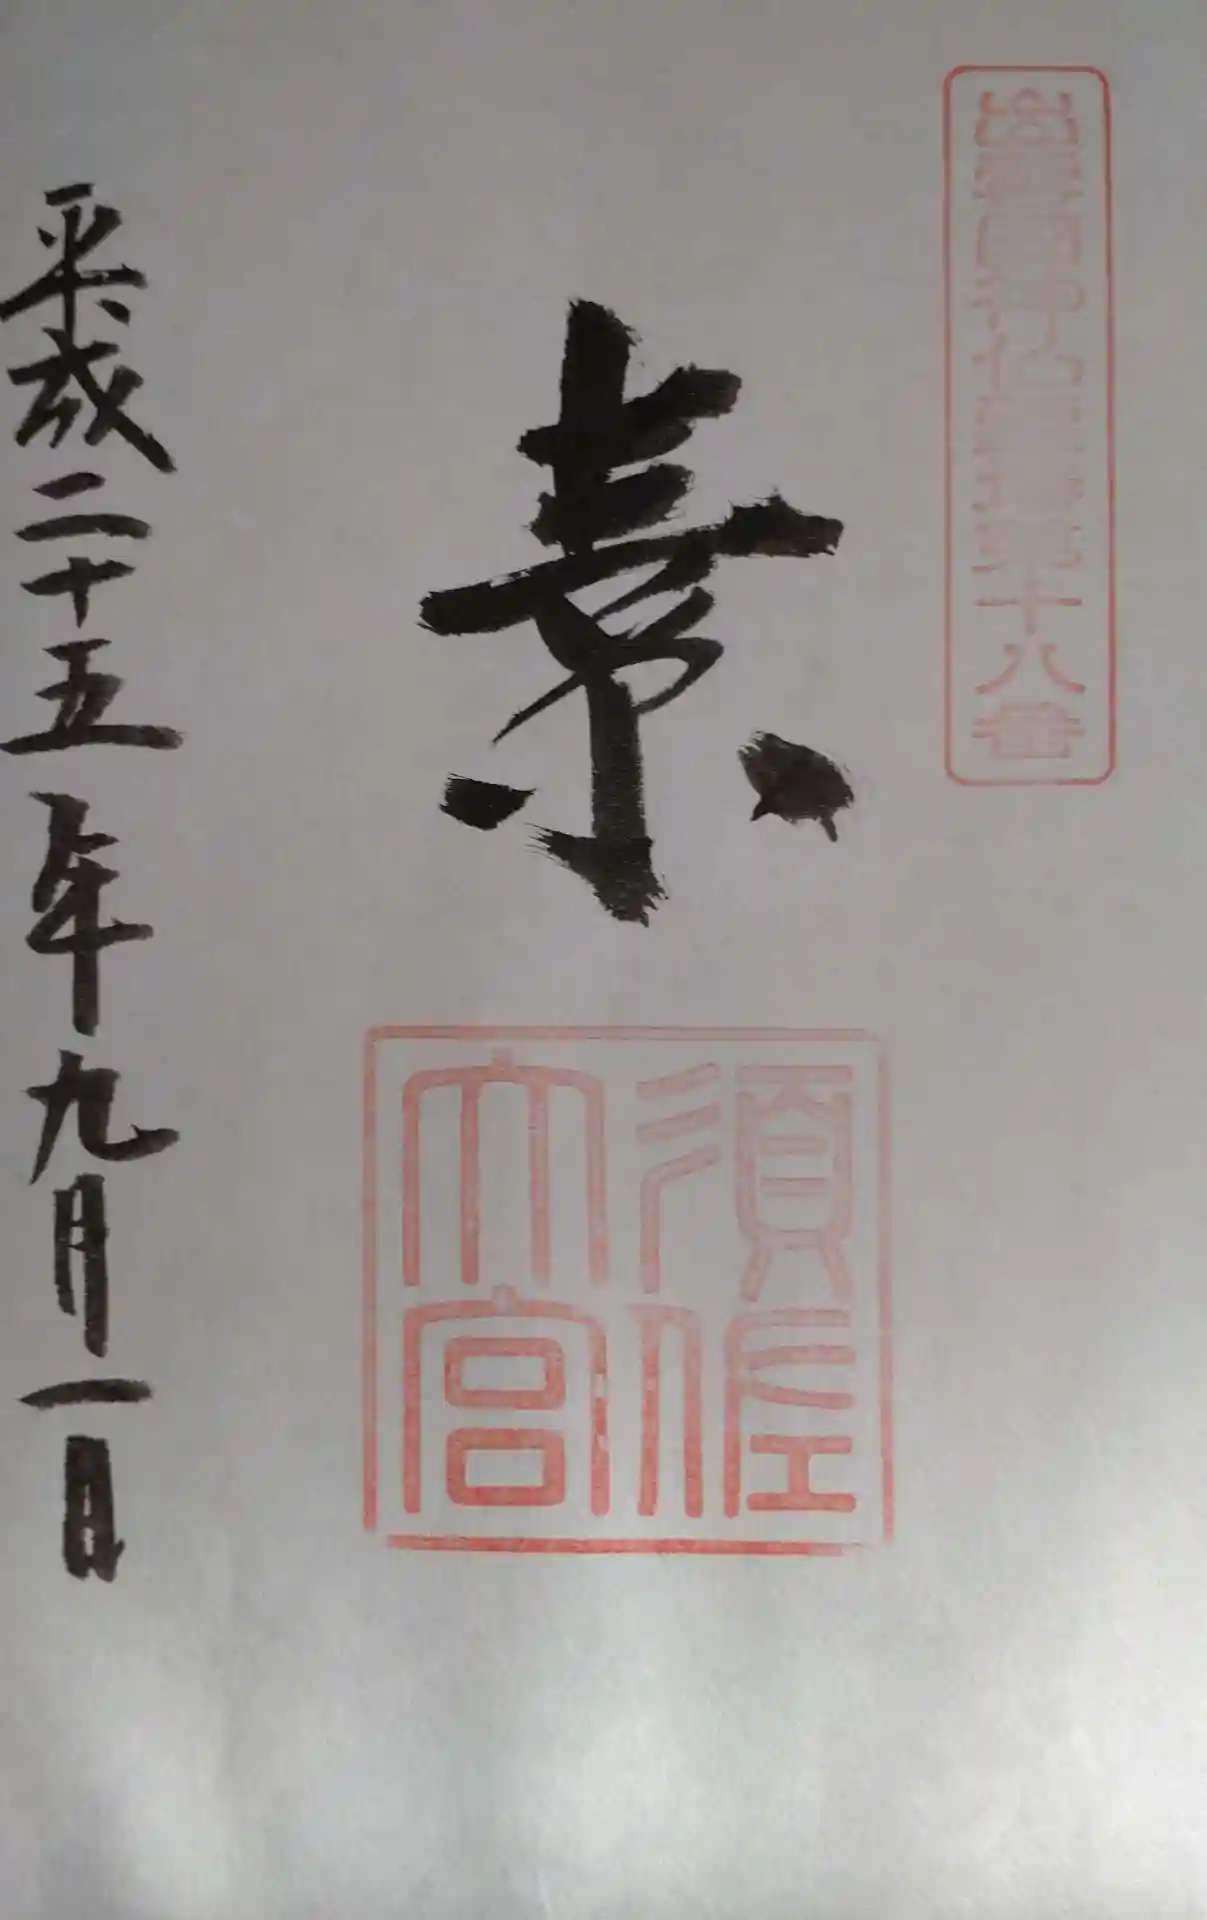 出雲國神仏霊場第十八番
素
須佐
大宮
平成二十五年九月一日